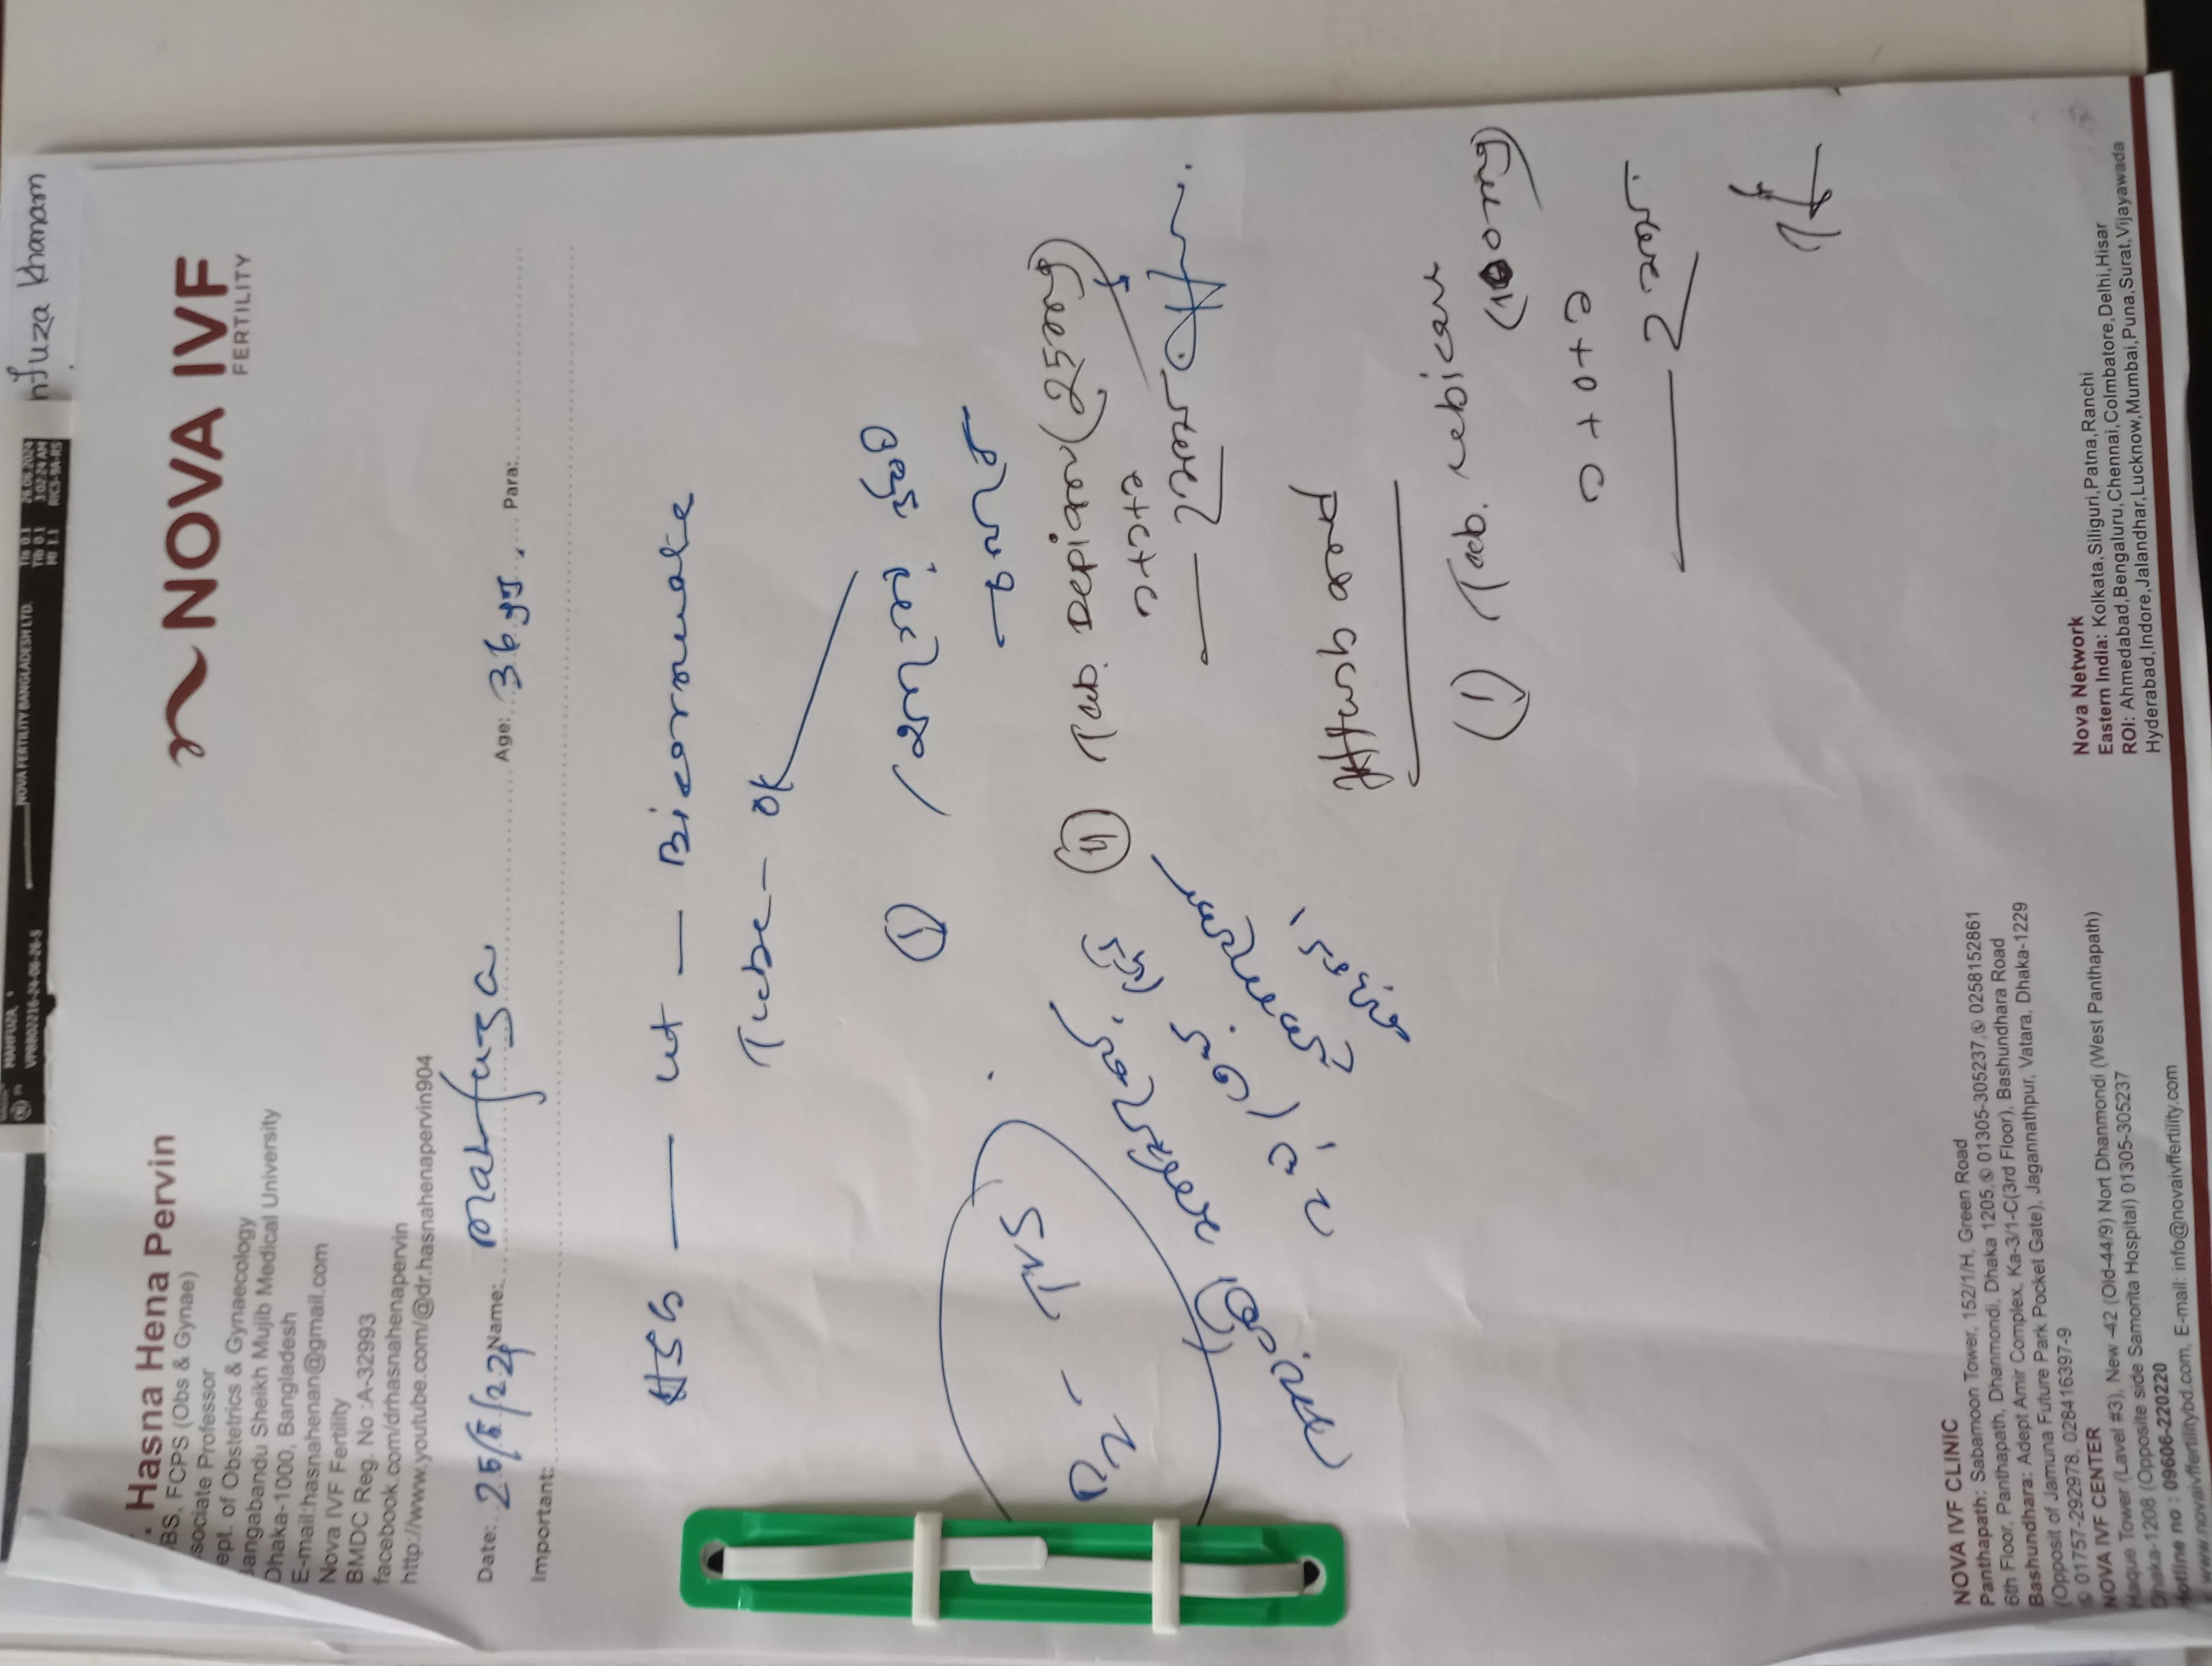 nfuza Khanam
MAHFUZA
VP8802216-24-06-26-5
NOVA FERTILITY BANGLADESH LTD.
TIs 0.1
26.06.2024
TIb 0.1
3:02:24 AM
MI 1.1
RIC5-9A-RS
Hasna Hena Pervin
BS, FCPS (Obs & Gynae)
sociate Professor
ept. of Obstetrics & Gynaecology
angabandu Sheikh Mujib Medical University
Dhaka-1000, Bangladesh
E-mail:hasnahenan@gmail.com
Nova IVF Fertility
BMDC Reg. No :A-32993
facebook.com/drhasnahenapervin
http://www.youtube.com/@dr.hasnahenapervin904
NOVA IVF
FERTILITY
Date: Name: Mahfuza Age: 36 yrs. Para:
Important:
HSG — ut — Bicornuate
Tube - ok
① চলবে
TVS
② Tab. (25mg)
১+০+১
— 2 মাস
Husband
① Tab. nebicar
১+০+১
— 2 মাস
NOVA IVF CLINIC
Panthapath: Sabamoon Tower, 152/1/H, Green Road
6th Floor, Panthapath, Dhanmondi, Dhaka 1205, 01305-305237, 0258152861
Bashundhara: Adept Amir Complex, Ka-3/1-C(3rd Floor), Bashundhara Road
(Opposit of Jamuna Future Park Pocket Gate), Jagannathpur, Vatara, Dhaka-1229
01757-292978, 028416397-9
NOVA IVF CENTER
Haque Tower (Lavel #3), New -42 (Old-44/9) Nort Dhanmondi (West Panthapath)
Dhaka-1208 (Opposite side Samorita Hospital) 01305-305237
Hotline no : 09606-220220
www.novaivffertilitybd.com, E-mail: info@novaivffertility.com
Nova Network
Eastern India: Kolkata,Siliguri,Patna,Ranchi
ROI: Ahmedabad,Bengaluru,Chennai,Coimbatore,Delhi,Hisar
Hyderabad,Indore,Jalandhar,Lucknow,Mumbai,Puna,Surat,Vijayawada